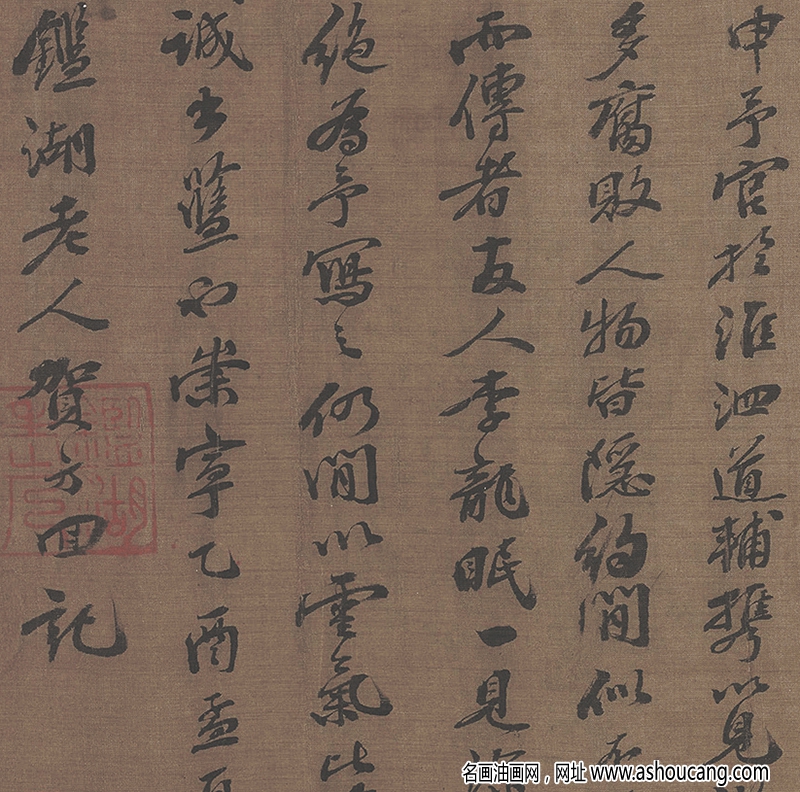 申予官於淮泗道輔携以見
多腐敗人物皆隱約間似
而傳者友人李龍眠一見
絶為予寫之仍間以雲氣比
誠出藍也崇寧乙酉孟夏
鑑湖老人賀方回記
名画油画网，网址 www.ashoucang.com